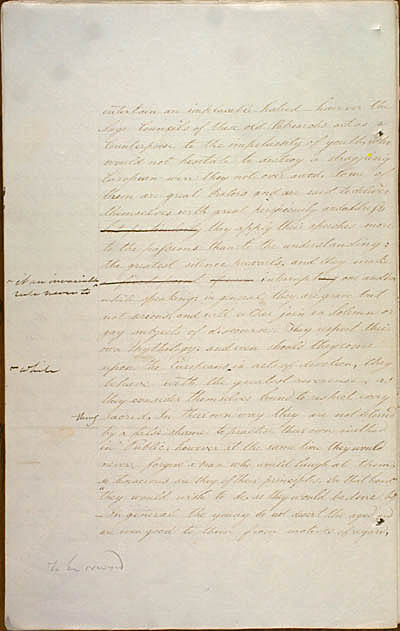 entertain an implacable hatred - however the
Sage Councils of these old Patriarchs act as a
Counterpoise to the impetuosity of youth, Who
would not hesitate to destroy a straggling
European were they not over awed. Some of
them are great Orators and are said to deliver
themselves with great perspicuity and
they apply their speeches more
to the passions than to the understanding;
the greatest silence prevails, and they make
it an invariable
rule never to
interrupt one another
while speaking; in general they are grave but
not serious, and will either join in solemn or
gay subjects of discourse. They respect their
own Mythology, and even should they come
upon the Europeans in acts of devotion, they
behave with the greatest reverence,
while
they consider themselves bound to respect every
thing
sacred. In their own way they are not
by a false shame to practise their own method
in Public, however at the same time they would
never forgive a man who would laugh at them,
so tenacious are they of their principles. In that
they would wish to do as they would be done by
- In general the young do not desert the aged and
are even good to them from motives of regard,